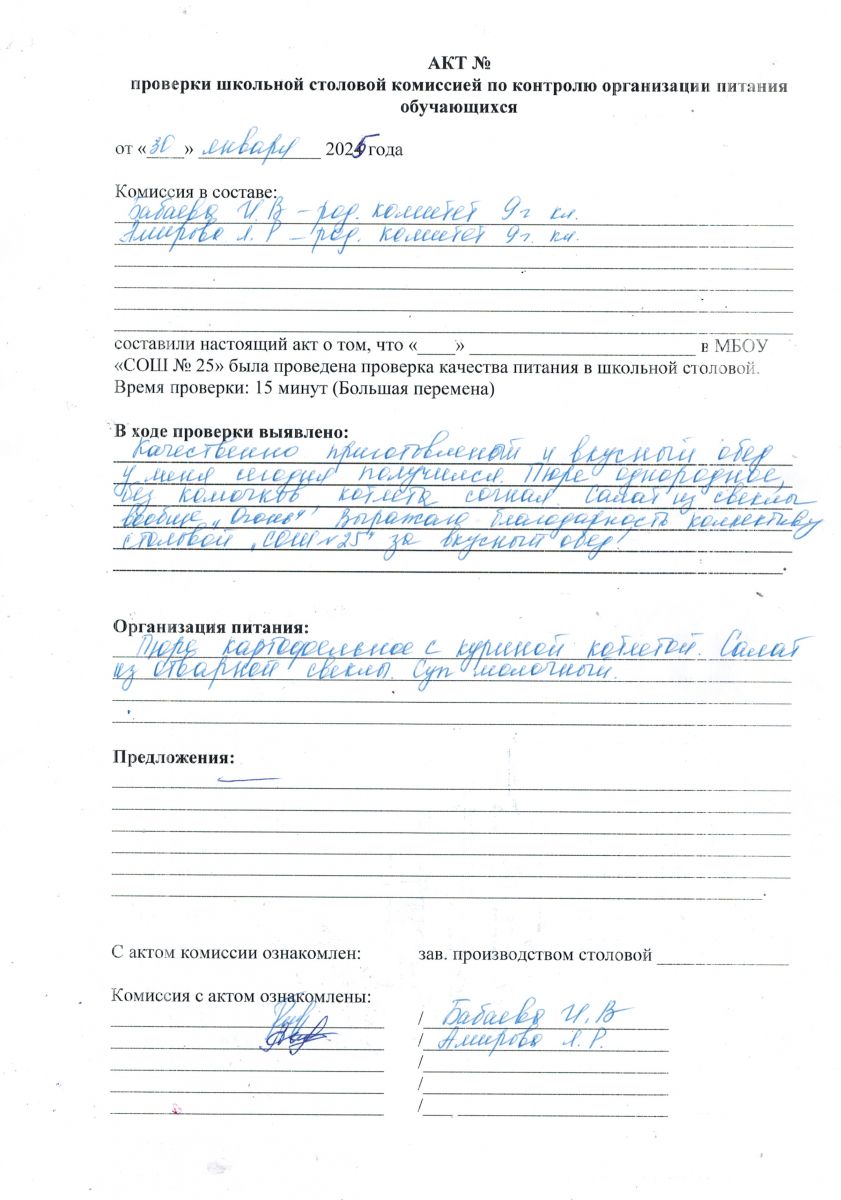 АКТ №
проверки школьной столовой комиссией по контролю организации питания
обучающихся
от «30» января 2025 года
Комиссия в составе:
Бабаева И. В – род. комитет 9г кл.
Амирова Л. Р – род. комитет 9г. кл.
составили настоящий акт о том, что «____» ________________________ в МБОУ
«СОШ № 25» была проведена проверка качества питания в школьной столовой.
Время проверки: 15 минут (Большая перемена)
В ходе проверки выявлено:
Качественно приготовленный и вкусный обед
у меня сегодня получился. Пюре однородное,
без комочков котлета сочная Салат из свеклы
вообще „Огонь" Выражаю благодарность коллективу
столовой „СОШ №25" за вкусный обед!
Организация питания:
Пюре картофельное с куриной котлетой. Салат
из отварной свеклы. Суп молочный.
Предложения:
С актом комиссии ознакомлен: зав. производством столовой ______________
Комиссия с актом ознакомлены:
/ Бабаева И. В
/ Амирова Л. Р.
/
/
/